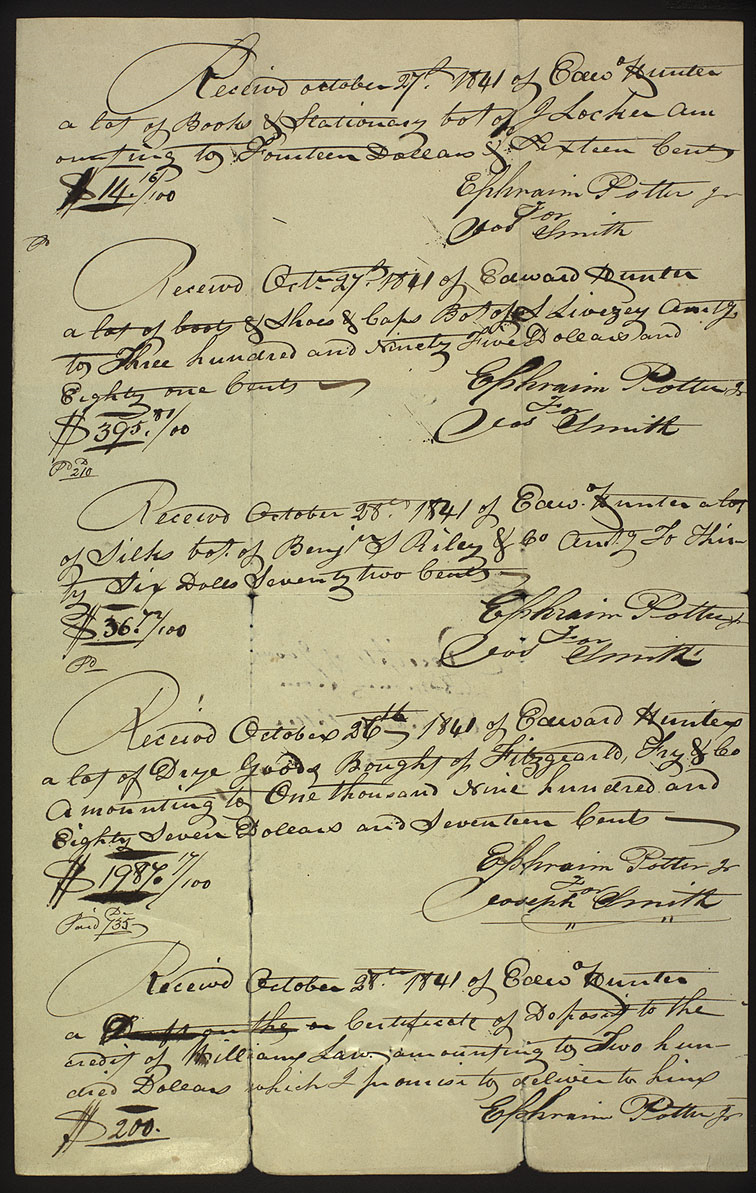 Receivd october 27th 1841 of Edwd Hunter
a lot of Books & Stationary bot of J Locken am
ounting to Fourteen Dollars & Sixteen Cents
$14.16/100
Ephraim Potter jr
For
Jos Smith
Pd
Receivd Octr 27th 1841 of Edward Hunter
a lot of boots & Shoes & Caps Bot of S Livezey Amtg
to Three hundred and Ninety Five Dollars and
Eighty one Cents
$395.81/100
Ephraim Potter Jr
For
Jos Smith
Pd 210
Receivd October 28th 1841 of Edwd Hunter a lot
of Silks bot of Benjn S Riley & Co Amtg To Thir-
ty Six Dolls Seventy two Cents
$36.72/100
Ephraim Potter jr
For
Jos Smith
Pd
Receivd October 26th 1841 of Edward Hunter
a lot of Drye Goods Bought of Fitzgearld, Fry & Co
Amounting to One thousand Nine hundred and
Eighty Seven Dollars and Seventeen Cents
$1987.17/100
Ephraim Potter Jr
For
Joseph Smith
Paid 735
Receivd October 28th 1841 of Edwd Hunter
a Draft on the or Certificate of Deposit to the
credit of William Law amounting to Two hun-
dred Dollars which I promis to deliver to him
$200.
Ephraim Potter Jr